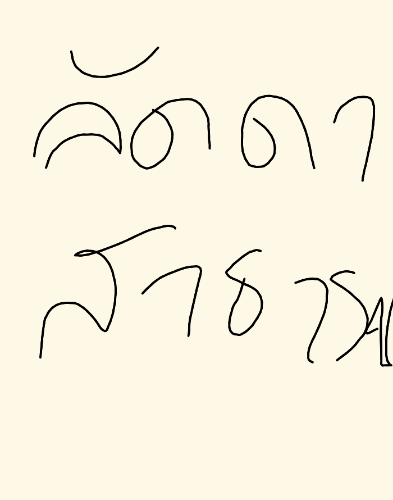 ลัดดา
สาธารณ